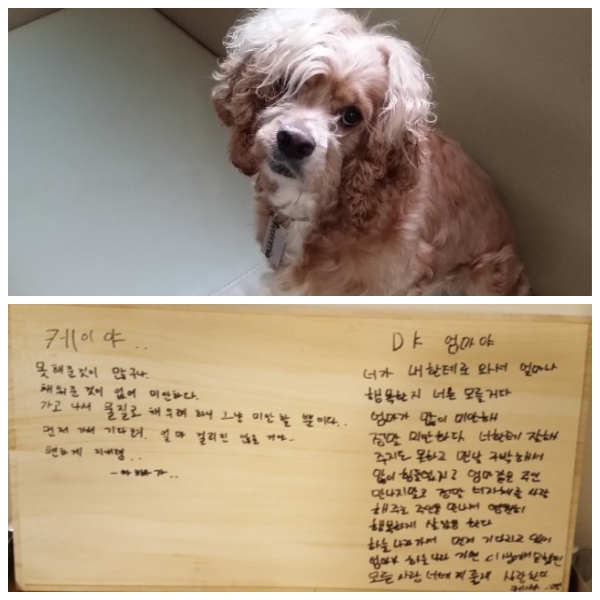 케이야..
못해준것이 많구나.
채워준 것이 없어 미안하다.
가고 나서 물질로 채우려 하니 그냥 미안할 뿐이다..
먼저 가서 기다려. 얼마 걸리진 않을 거야.
편하게 지내렴..
-아빠가..
DK 엄마야
너가 내한테로 와서 얼마나
행복한지 너를 모를거다
엄마가 많이 미안해
정말 미안하다. 너한테 잘해
주지도 못하고 맨날 구박해서
많이 힘들었지? 엄마같은 주인
만나지말고 정말 너자체를 사랑
해주는 주인을 만나서 영원히
행복하게 살길을 한다
하늘나라가서 먼저 기다리고 있어
엄마도 하늘나라 가면
모든 사랑 너에게 줄게 사랑한다